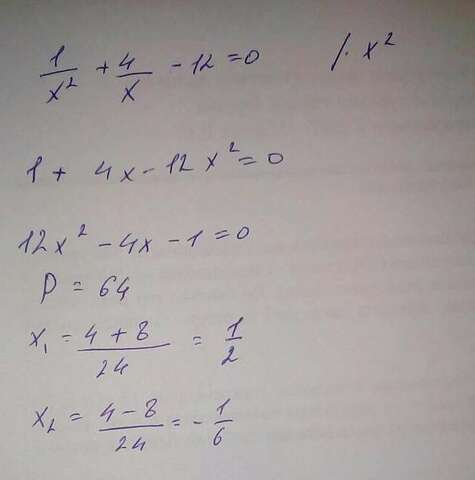 1/x² + 4/x - 12 = 0 /· x²
1 + 4x - 12x² = 0
12x² - 4x - 1 = 0
D = 64
x₁ = (4 + 8)/24 = 1/2
x₂ = (4 - 8)/24 = - 1/6